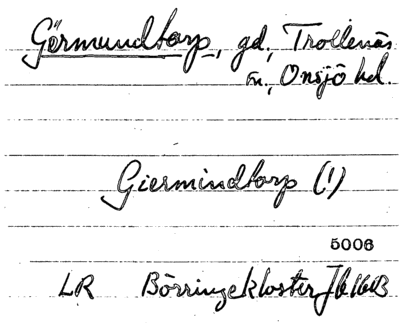 Görmundtorp, gd, Trollenäs
sn, Onsjö hd.
Giermindtorp (!)
5006
LR Börringekloster Jb 1613